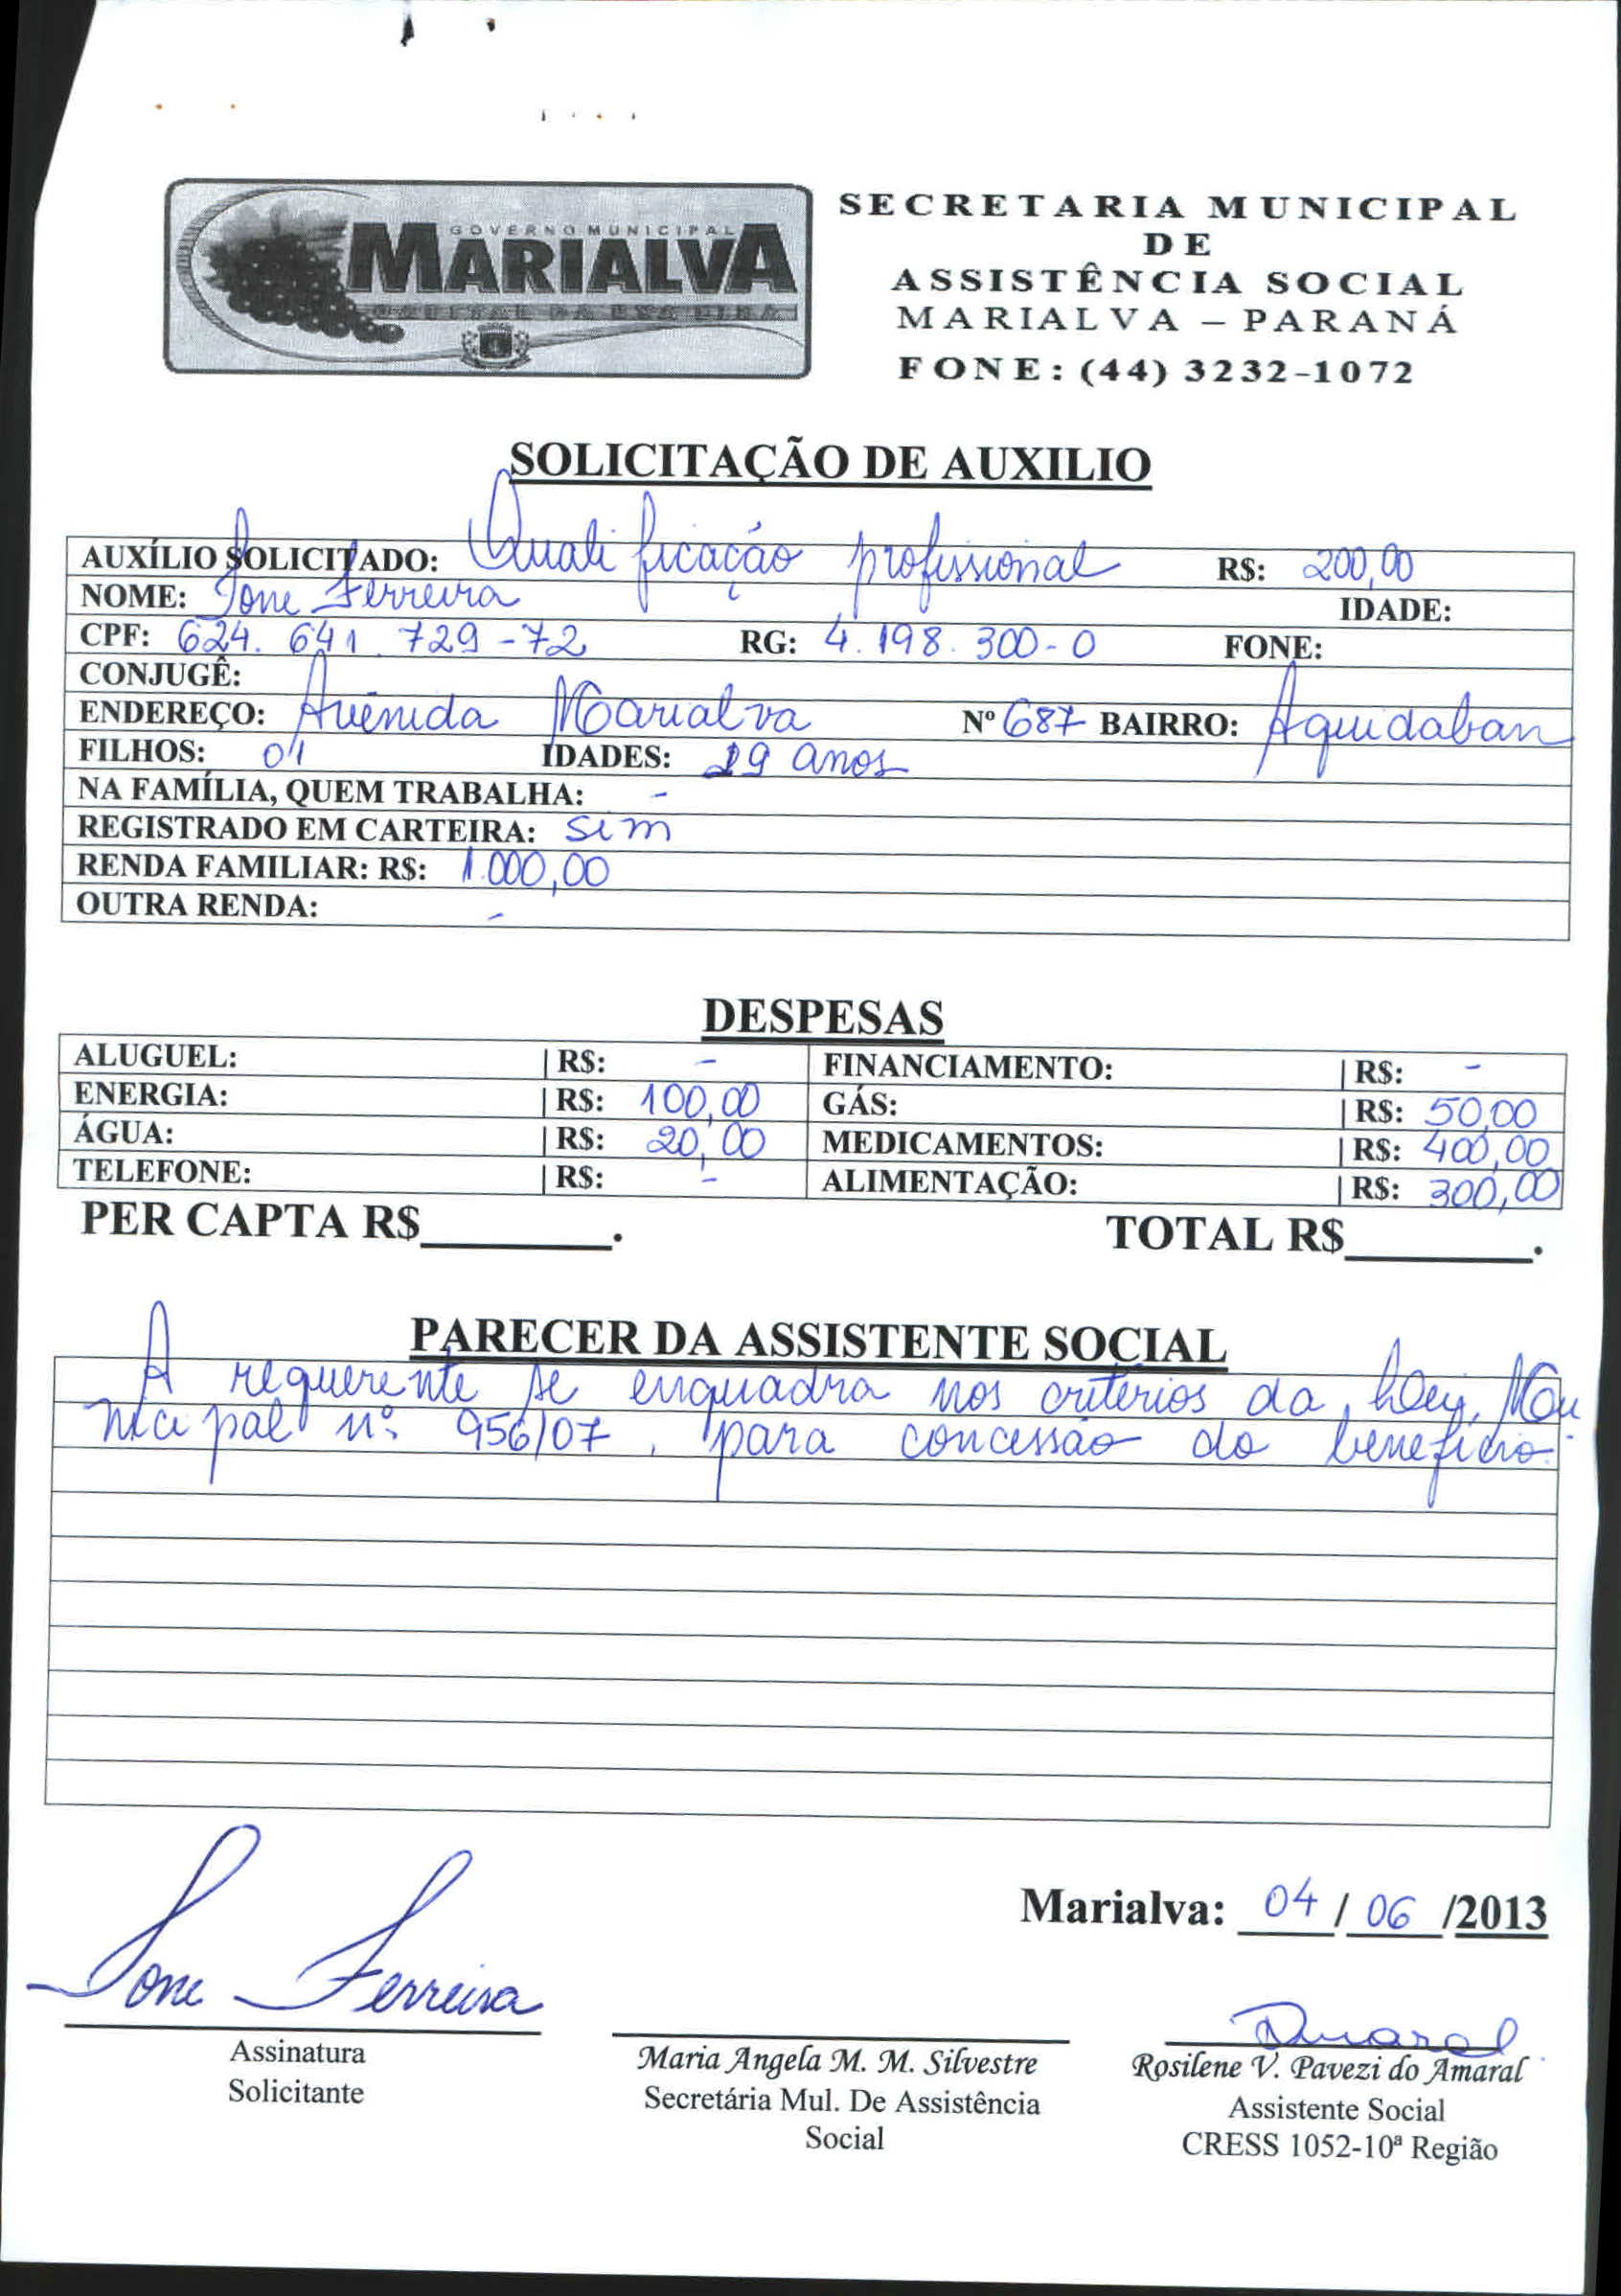 GOVERNO MUNICIPAL
MARIALVA
CAPITAL DA UVA FINA
SECRETARIA MUNICIPAL
DE
ASSISTÊNCIA SOCIAL
MARIALVA – PARANÁ
FONE: (44) 3232-1072
SOLICITAÇÃO DE AUXILIO
AUXÍLIO SOLICITADO: Qualificação profissional R$: 200,00
NOME: Ione Ferreira IDADE:
CPF: 624.641.729-72 RG: 4.198.300-0 FONE:
CONJUGÊ:
ENDEREÇO: Avenida Marialva Nº 687 BAIRRO: Aquidaban
FILHOS: 01 IDADES: 29 anos
NA FAMÍLIA, QUEM TRABALHA: -
REGISTRADO EM CARTEIRA: sim
RENDA FAMILIAR: R$: 1.000,00
OUTRA RENDA: -
DESPESAS
ALUGUEL: | R$: - FINANCIAMENTO: | R$: -
ENERGIA: | R$: 100,00 GÁS: | R$: 50,00
ÁGUA: | R$: 20,00 MEDICAMENTOS: | R$: 400,00
TELEFONE: | R$: - ALIMENTAÇÃO: | R$: 300,00
PER CAPTA R$_______. TOTAL R$_______.
PARECER DA ASSISTENTE SOCIAL
A requerente se enquadra nos critérios da Lei Mu
nicipal nº 956/07, para concessão do benefício.
Marialva: 04 / 06 /2013
Ione Ferreira
Assinatura
Solicitante
Maria Angela M. M. Silvestre
Secretária Mul. De Assistência
Social
Amaral
Rosilene V. Pavezi do Amaral
Assistente Social
CRESS 1052-10ª Região